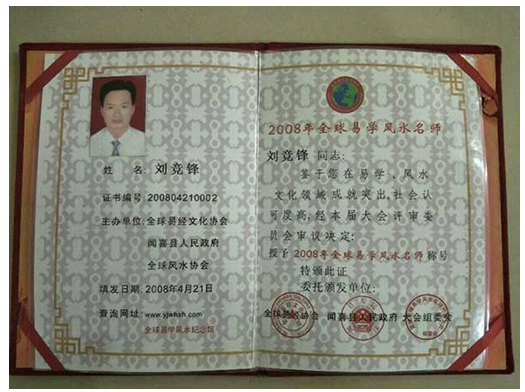 姓 名: 刘竞锋
证书编号: 200804210002
主办单位: 全球易经文化协会
闻喜县人民政府
全球风水协会
填发日期: 2008年4月21日
查询网址: www.yjwhxh.com
全球易学风水纪念馆
2008年全球易学风水名师
刘竞锋 同志:
鉴于您在易学、风水
文化领域成就突出,社会认
可度高,经本届大会评审委
员会审议决定:
授予2008年全球易学风水名师称号
特颁此证
委托颁发单位:
全球易经协会 闻喜县人民政府 大会组委会